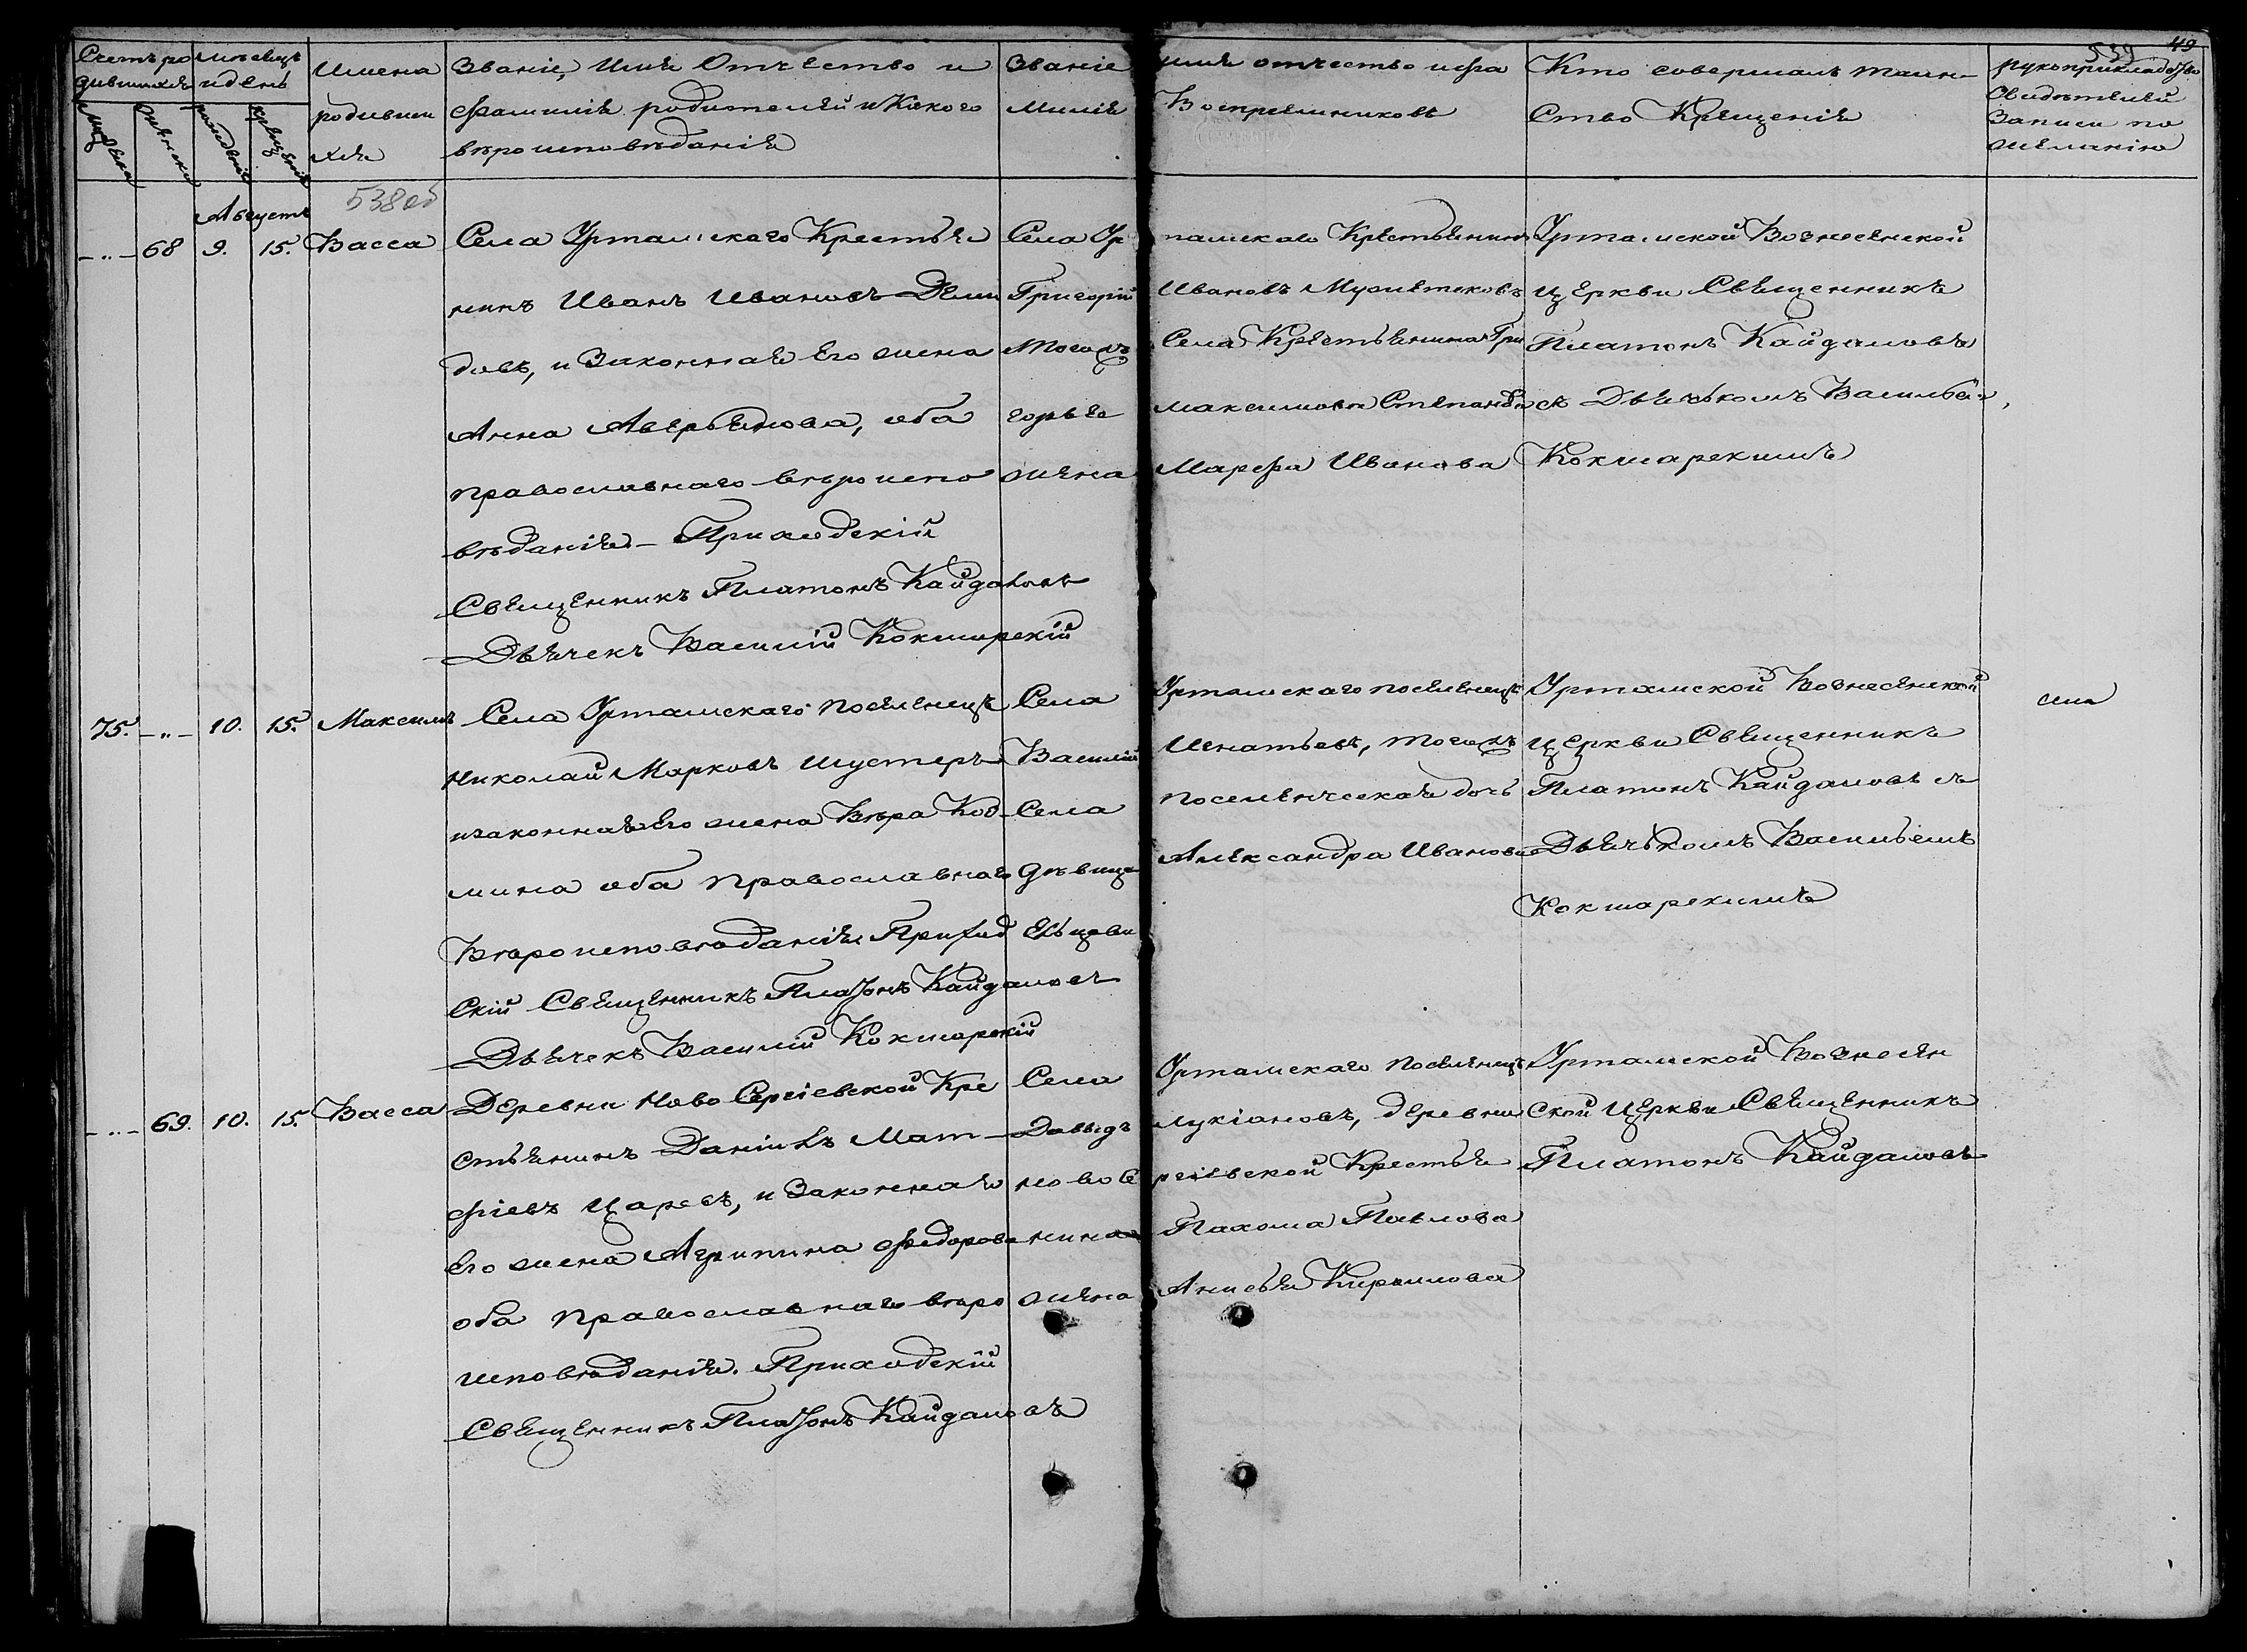 49
539
Счетъ ро
дившихся
мѣсяцъ
и день
Имена
родивши
хся
Званіе, Имя Отчество и
фамилія родителей и Какого
вѣроисповѣданія
Званіе имя отчество и фа
милія Воспріемниковъ
Кто совершалъ таин-
ство Крещенія
рукоприкладство
Свидѣтелей
Записи по
желанію
538 об
Августъ
-„- 68 9. 15. Васса
Села Уртамскаго Крестья
нинъ Иванъ Ивановъ Деми
довъ, и Законная Его жена
Анна Аверьянова, оба
православнаго вѣроиспо
вѣданія – Приходскій
Священникъ Платонъ Кайдаловъ
Дьячекъ Василій Кокшарскій
Села Ур тамскаго Крестьянинъ
Григорій Ивановъ
Тогожъ Села Крестьянина Гри
горья Максимова Степанова
жена Марѳа Иванова
Уртамской Вознесенской
Церкви Священникъ
Платонъ Кайдаловъ
съ Дьячькомъ Васильем,
Кокшарскимъ
75. -„- 10. 15. Максимъ
Села Уртамскаго поселенецъ
Николай Марковъ Шустеръ
и законная Его жена Вѣра Код-
мина оба православнаго
Вѣроисповѣданія Приход
скій Священникъ Платонъ Кайдаловъ
Дьячекъ Василій Кокшарскій
Села Уртамскаго поселенецъ
Василій Игнатьевъ, тогожъ
Села поселенческая дочь
дѣвица Александра Иванова
Уртамской Вознесенской
Церкви Священникъ
Платонъ Кайдаловъ съ
Дьячькомъ Васильемъ
Кокшарскимъ
-„- 69. 10. 15. Васса
Деревни Ново Сергіевской Кре
стьянинъ Даніилъ Мат-
фіевъ Царевъ, и Законная
Его жена Агрипина Федорова
оба православнаго вѣро
исповѣданія. Приходскій
Священникъ Платонъ Кайдаловъ
Села Уртамскаго поселенецъ
Давыдъ Лукіановъ, деревни
Ново Се ргіевской Крестья
нина Пахома Павлова
жена Анисья Кирилова
Уртамской Вознесен
ской Церкви Священникъ
Платонъ Кайдаловъ